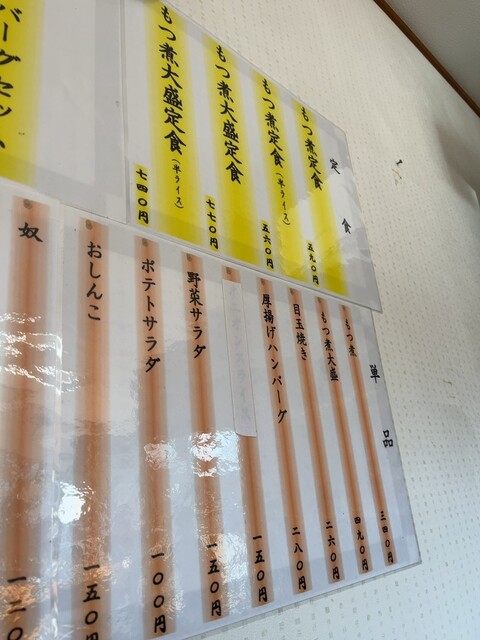 定食
もつ煮定食 五九〇円
もつ煮定食(半ライス) 五六〇円
もつ煮大盛定食 七七〇円
もつ煮大盛定食(半ライス) 七四〇円
バーグセット
単品
もつ煮 三四〇円
もつ煮大盛 四九〇円
目玉焼き 二六〇円
厚揚げハンバーグ 二八〇円
一五〇円
野菜サラダ 一五〇円
ポテトサラダ 一〇〇円
おしんこ 一五〇円
奴 一二〇